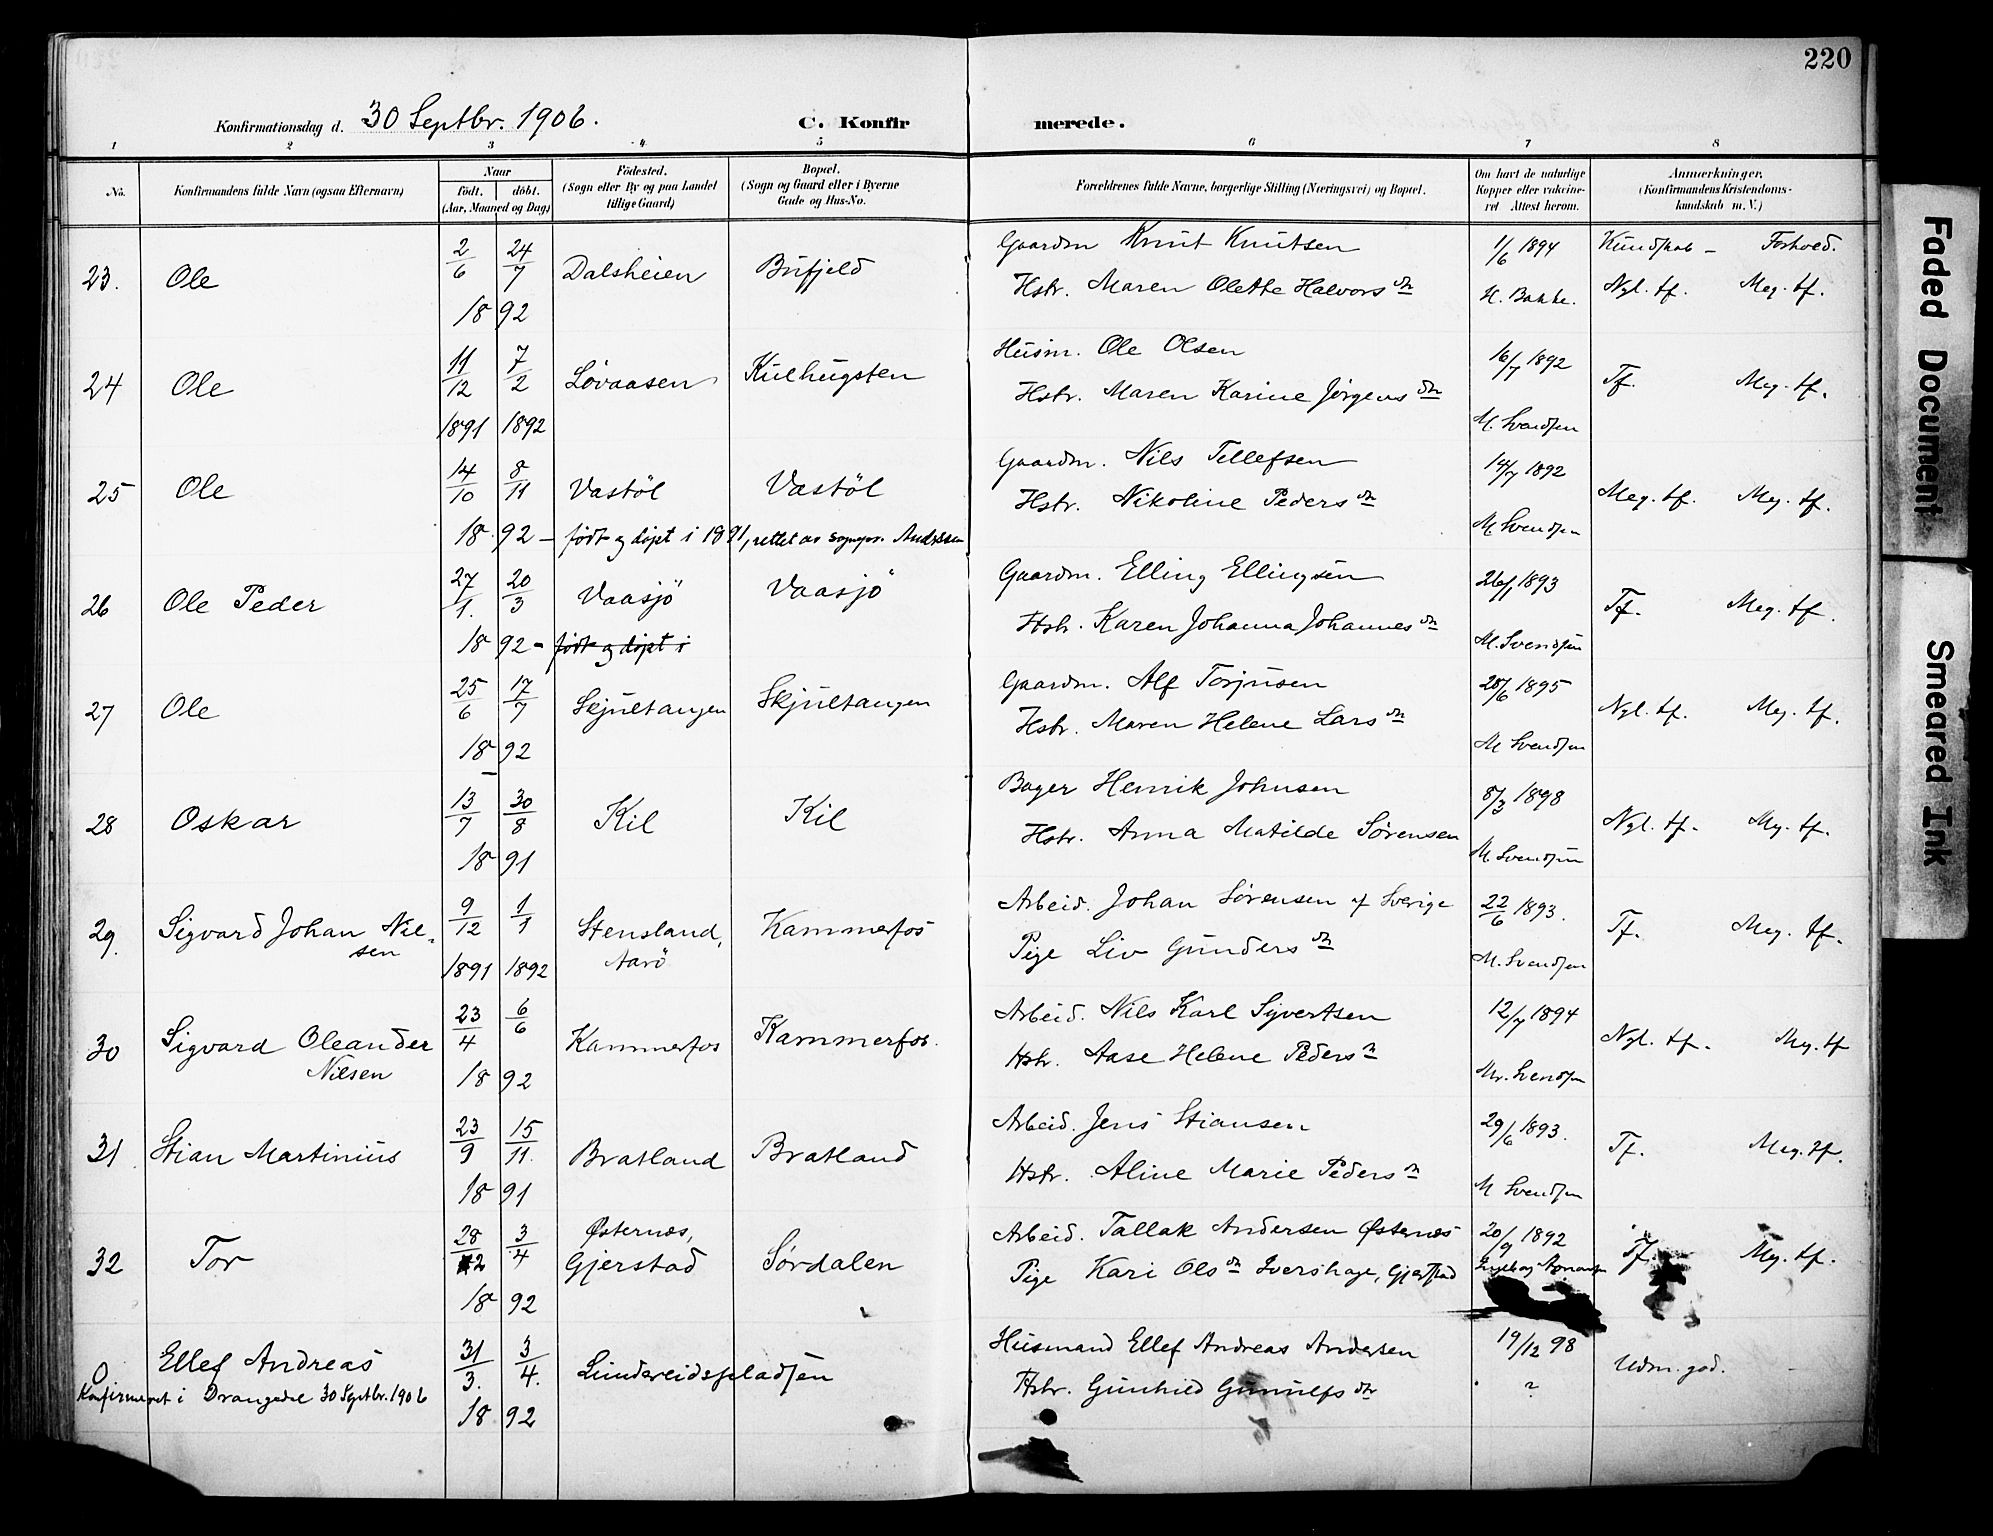 220
Konfirmationsdag d. 30 Septbr. 1906. C. Konfirmerede.
1 2 3 4 5 6 7 8
No. Konfirmandens fulde Navn (ogsaa Efternavn) Naar født. døbt. (Aar, Maaned og Dag) Fødested. (Sogn eller By og paa Landet tillige Gaard) Bopæl. (Sogn og Gaard eller i Byerne Gade og Hus-No. Forældrenes fulde Navne, borgerlige Stilling (Næringsvei) og Bopæl. Om havt de naturlige Kopper eller vakcineret Attest herom. Anmærkninger. (Konfirmandens Kristendomskundskab m. V.)
23. Ole 2/6 24/7 1892 Dalsheien Bufjeld Gaardm Knut Knutsen 1/6 1894 Kundskab – Forhold.
Hstr. Maren Olette Halvorsdtr H. Bakke. Ngl. tf. Meg. tf.
24 Ole 11/12 1891 7/2 1892 Løvaasen Kulhugsten Husm. Ole Olsen 16/7 1892 Tf. Meg. tf.
Hstr. Maren Karine Jörgensdtr M. Svendsen
25 Ole 14/10 8/11 1892 Vastöl Vastöl Gaardm. Nils Tellefsen 14/7 1892 Meg. tf. Meg. tf.
Hstr. Nikoline Pedersdtr M Svendsen
– født og døpt i 1891, rettet av sognepr. Andersen
26 Ole Peder 27/1. 20/3 1892 – Vaasjö Vaasjö Gaardm. Elling Ellingsen 26/1 1893 Tf. Meg. tf.
født og døpt i Hstr. Karen Johanna Johannesdtr M. Svendsen
27 Ole 25/6 17/7 1892 Skjultangen Skjultangen Gaardm. Alf Torjusen 28/6 1895 Ngl. tf. Meg. tf.
Hstr. Maren Helene Larsdtr M Svendsen
28 Oskar 13/7 30/8 1891 Kil Kil Bager Henrik Johnsen 8/3 1898 Ngl. tf. Meg. tf.
Hstr. Anna Matilde Sørensen M. Svendsen
29. Sigvard Johan Nilsen 9/12 1891 1/1 1892 Stensland, Aarö Kammerfos Arbeid. Johan Sørensen af Sverige 22/6 1893. Tf. Meg. tf.
Pige Liv Gundersdtr M. Svendsen
30 Sigvard Oleander Nilsen 23/4 6/6 1892 Kammerfos Kammerfos. Arbeid. Nils Karl Syvertsen 12/7 1894 Ngl. tf. Meg. tf
Hstr. Aase Helene Pedersdtr M. Svendsen
31 Stian Martinius 23/9 15/11. 1891 Bratland Bratland Arbeid. Jens Stiansen 29/6 1893. Tf. Meg. tf.
Hstr. Aline Marie Pedersdtr M Svendsen
32 Tor 28/2 3/4 1892 Østernæs, Gjerstad Sørdalen Arbeid. Tallak Andersen Østernæs 20/9 1892 Tf. Meg. tf.
Pige Kari Olsdtr Ivershage, Gjerstad
0 Ellef Andreas 31/3. 3/4. 1892 Lundereidspladsen Husmand Ellef Andreas Andersen 19/12 98 Udm. god.
Konfirmeret i Drangedal 30 Septbr. 1906 Hstr. Gunhild Gunulfsdtr ?
Faded Document
Smeared Ink